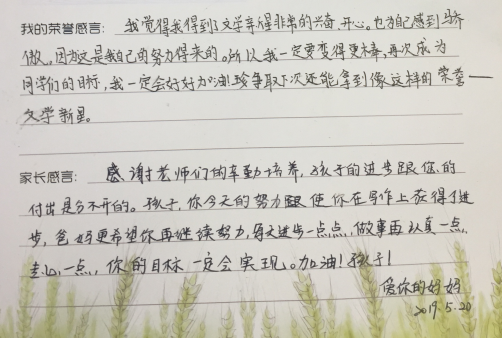 我的荣誉感言：我觉得我得到文学新星非常的兴奋、开心。也为自己感到骄
傲，因为这是我自己的努力得来的。所以我一定要变得更棒，再次成为
同学们的目标，我一定会好好加油，争取下次还能拿到像这样的荣誉——
文学新星。
家长感言：感谢老师们的辛勤培养，孩子的进步跟您的
付出是分不开的。孩子，你今天的努力使你在写作上获得了进
步，爸妈更希望你再继续努力，每天进步一点点，做事再认真一点，
走心一点，你的目标一定会实现。加油！孩子！
爱你的妈妈
2019.5.20